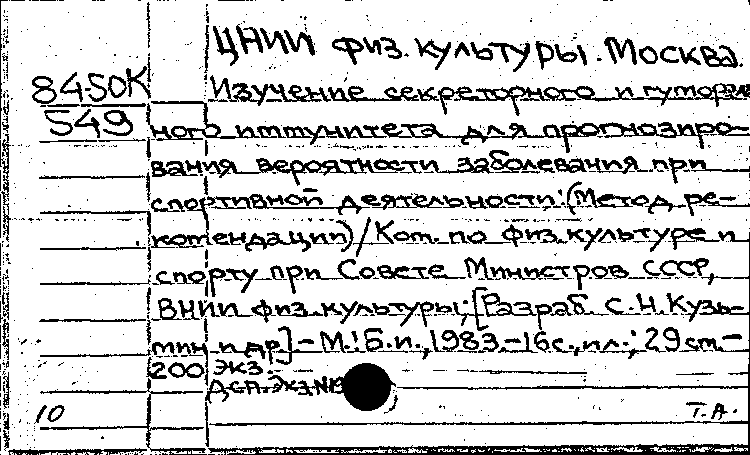 ЦНИИ физ. культуры. Москва.
84-50К
549
Изучение секреторного и гумораль-
ного иммунитета для прогнозиро-
вания вероятности заболевания при
спортивной деятельности: (Метод. ре-
комендации) / Ком. по физ. культуре и
спорту при Совете Министров СССР,
ВНИИ физ. культуры; [Разраб. С. Н. Кузь-
мин и др.] - М.: Б. и., 1983. - 16с., ил.; 29 см. -
200 экз.
ДСП. Экз. №
10
Т.А.